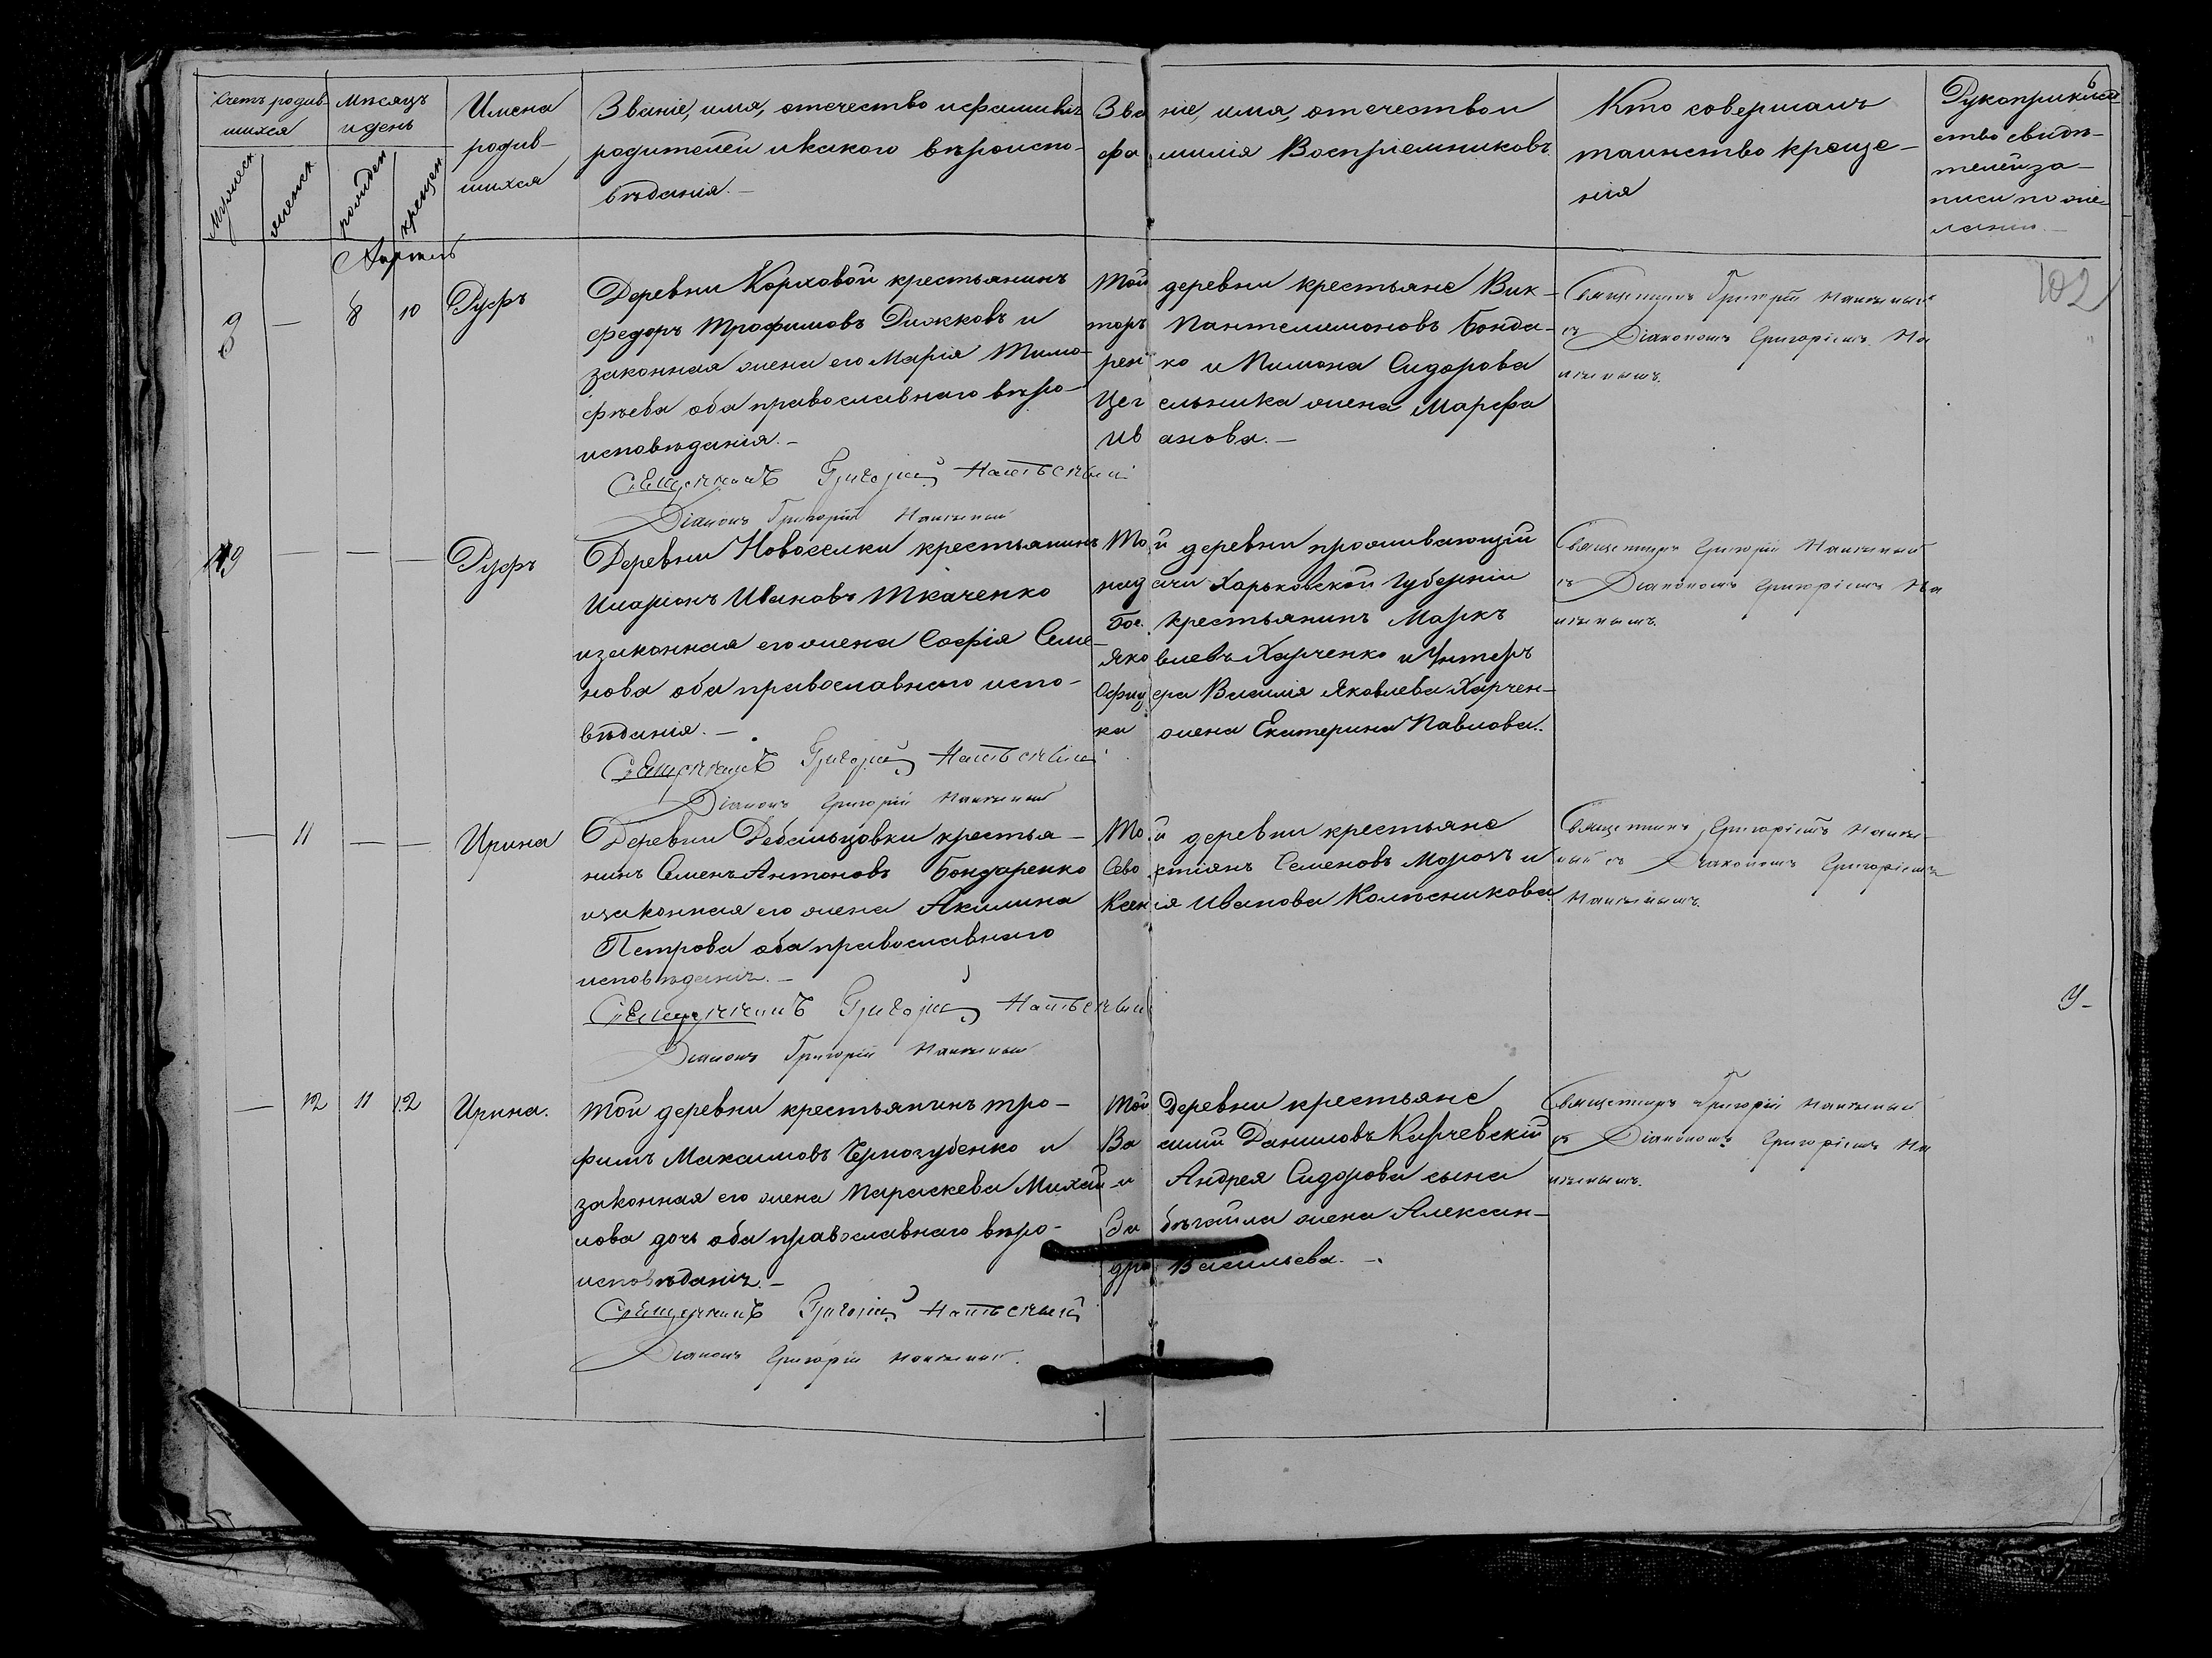 Счетъ родив-
шихся
Мѣсяцъ
и день
Имена
родив-
шихся
Званіе, имя, отечество и фамилія
родителей и какого вѣроиспо-
вѣданія.-
Званіе, имя, отечество и
фамилія Воспріемниковъ.
Кто совершалъ
таинство креще-
нія
Рукоприклад
ство свидѣ-
телей за-
писи по же-
ланію.-
6
Мужеск
женск
рожден
крещен
Апрель
102
9 — 8 10 Руфъ
Деревни Корховой крестьянинъ
Федоръ Трофимовъ Рижковъ и
законная жена его Марія Тимо-
фѣева оба православнаго вѣро-
исповѣданія.-
Священникъ Григорій
Діаконъ Григорій
Той деревни крестьяне Вик-
торъ Пантелимоновъ Бонда-
ренко и Пимона Сидорова
Цегельника жена Марфа
Иванова.-
Священникъ Григорій
съ Діакономъ Григоріемъ
— — — Руфъ
Деревни Новоселки крестьянинъ
Иларіонъ Ивановъ Ткаченко
и законная его жена Софія Семе-
нова оба православнаго испо-
вѣданія.-
Священникъ Григорій
Діаконъ Григорій
Той деревни проживающій
Харьковской Губерніи
крестьянинъ Маркъ
Яковлевъ Харченко и Унтеръ
Офицера Василія Яковлева Харчен-
ка жена Екатерина Павлова.
Священникъ Григорій
съ Діакономъ Григоріемъ
— 11 — — Ирина
Деревни Дебальцовки крестья-
нинъ Семенъ Антоновъ Бондаренко
и законная его жена Акилина
Петрова оба православнаго
исповѣданія.-
Священникъ Григорій
Діаконъ Григорій
Той деревни крестьяне
Севостіянъ Семеновъ Морозъ и
Ксенія Иванова Колѣсникова.
Діакономъ Григоріемъ
У-
— 12 11 12 Ирина.
Той деревни крестьянинъ Тро-
фимъ Максимовъ Черногубенко и
законная его жена Параскева Михай-
лова дочь оба православнаго вѣро-
исповѣданія.-
Священникъ Григорій
Діаконъ Григорій
Той деревни крестьяне
Василій Даниловъ Карчевскій
и Андрея Сидорова сына
жена Алексан-
дра Васильева.-
Священникъ Григорій
съ Діакономъ Григоріемъ